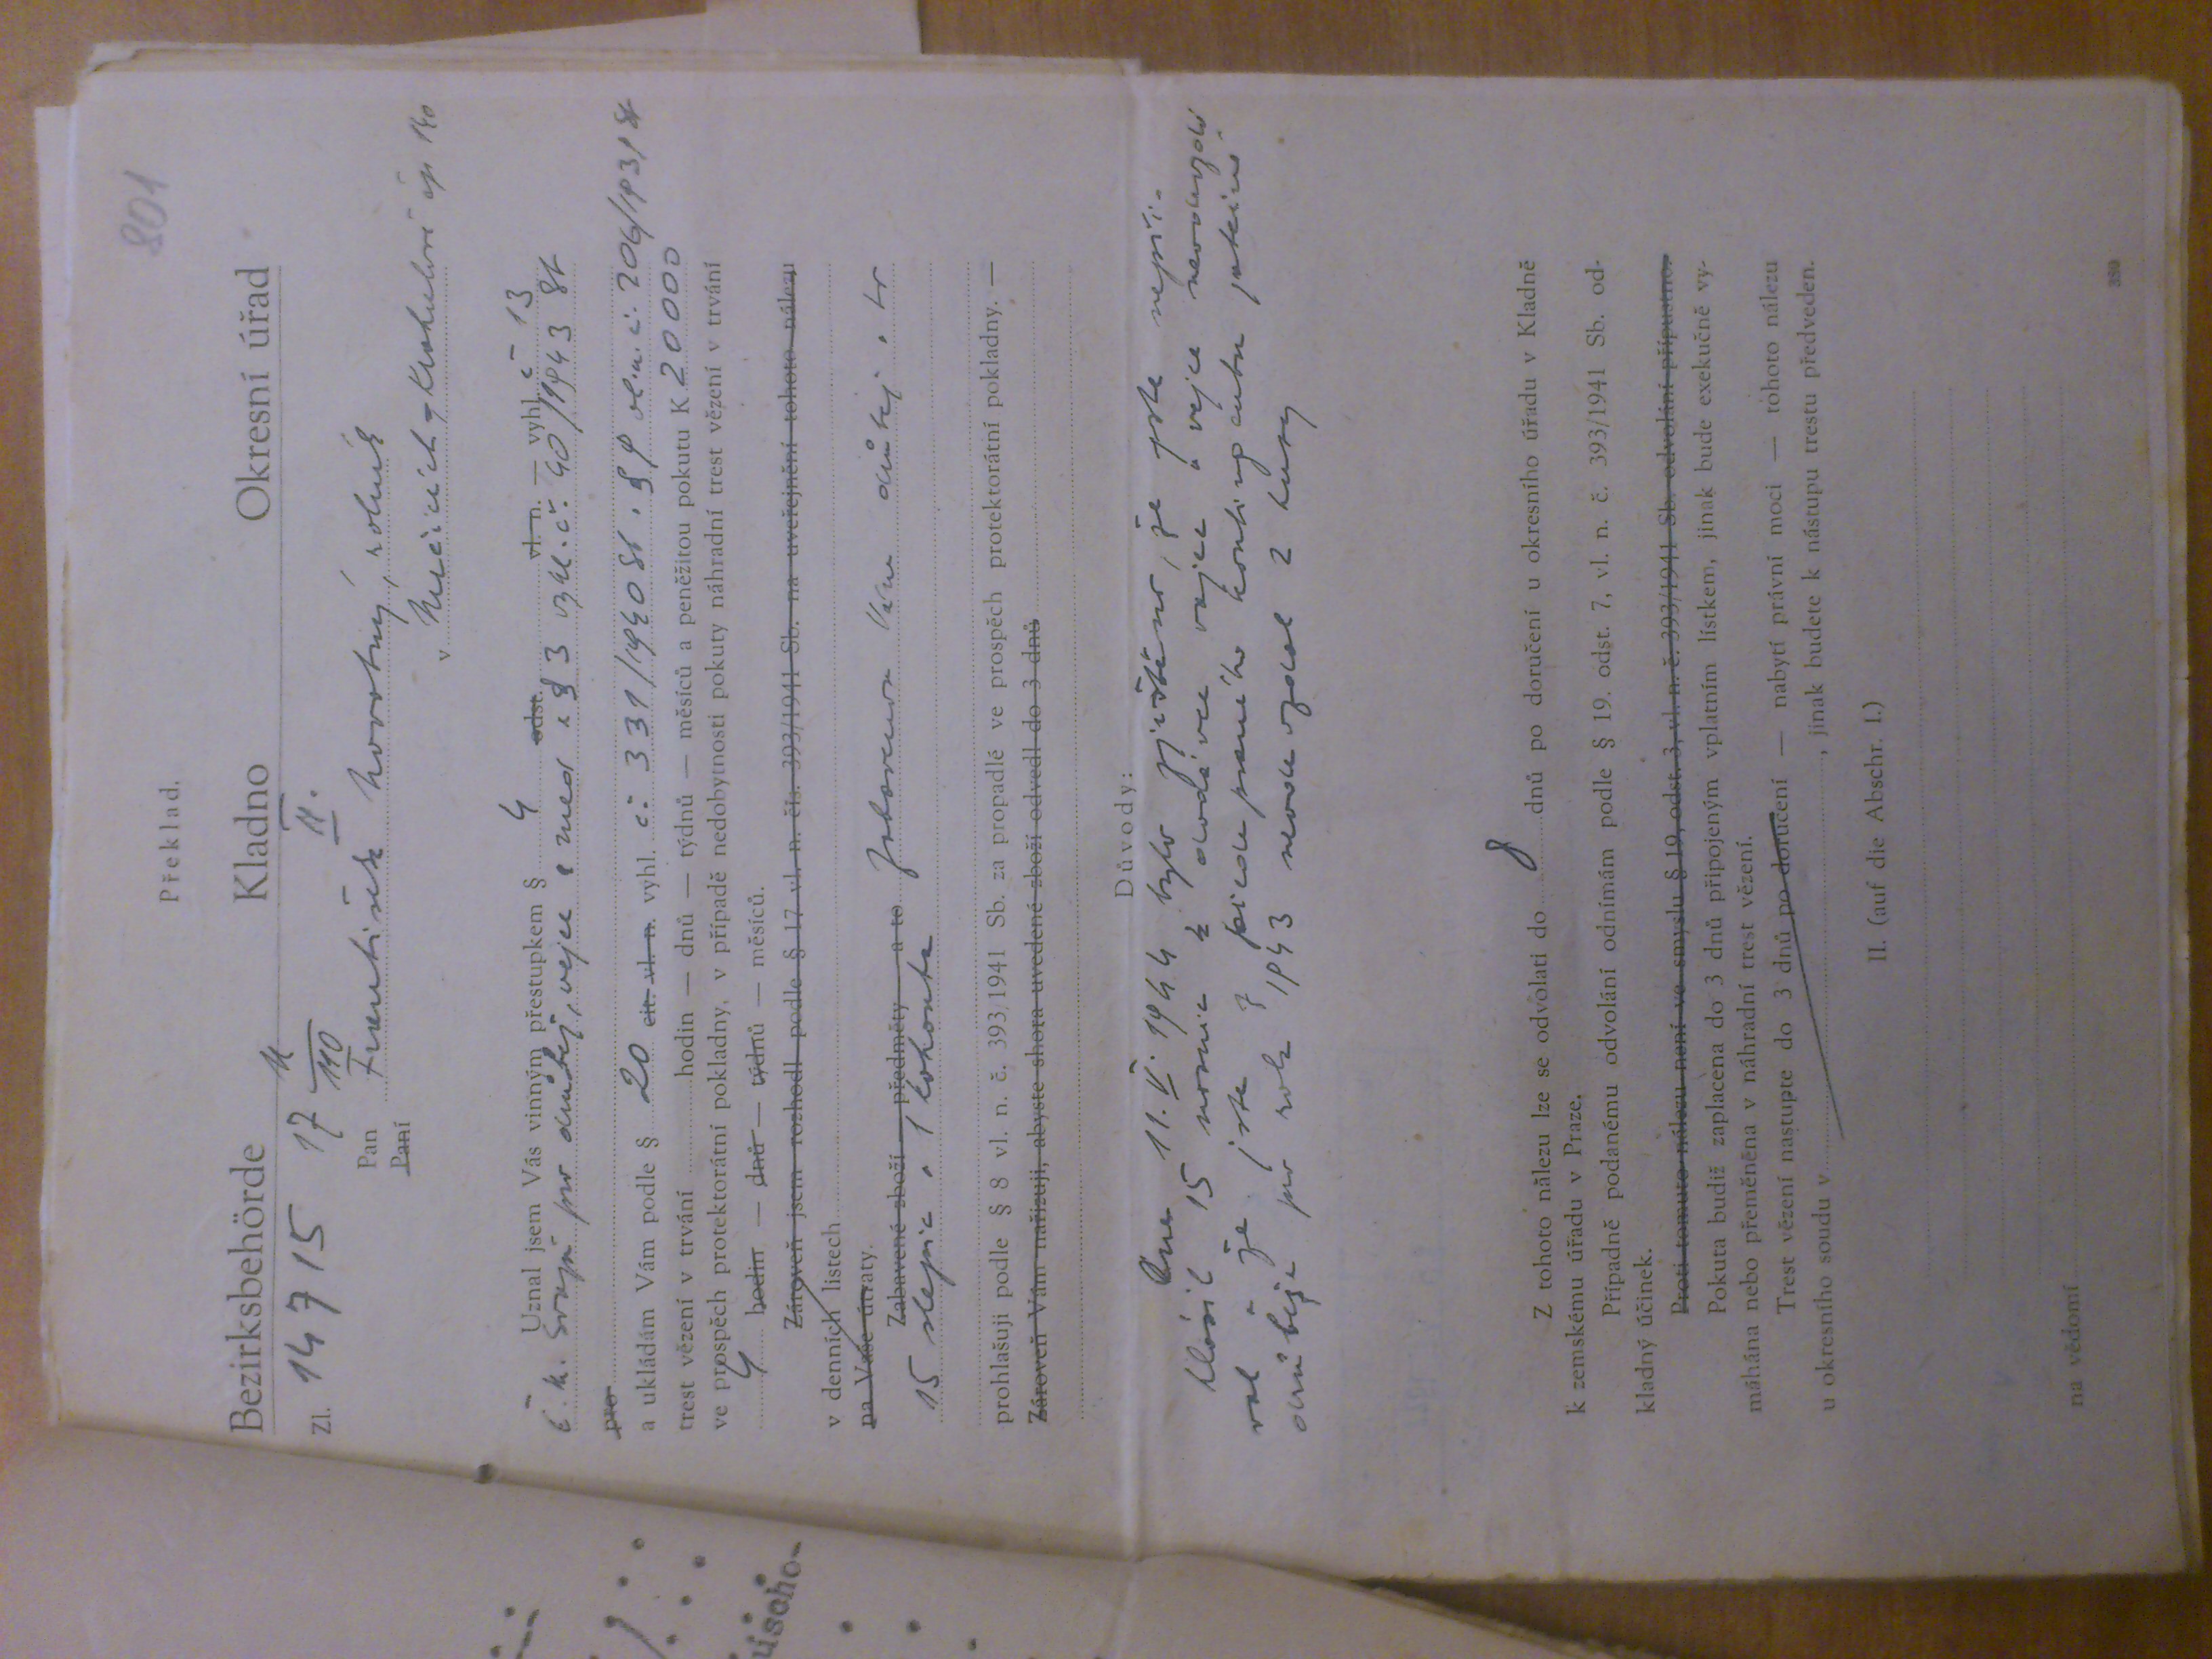 801
Překlad.
Bezirksbehörde Kladno Okresní úřad
Zl. 14715 17 II/110 II.
Pan František Novotný, rolník
Paní
v Nučicích - Krahulově čp 140
Uznal jsem Vás vinným přestupkem § 4 odst. vl. n. — vyhl. č 13
č. m. Svazu pro drůbež, vejce a med a § 3 vyhl. č. 40/1943 Sb
pro
a ukládám Vám podle § 20 cit. vl. n. vyhl. č. 331/1940 Sb a § 9 vl. n. č. 206/1939 Sb
trest vězení v trvání hodin — dnů — týdnů — měsíců a peněžitou pokutu K 20000
ve prospěch protektorátní pokladny, v případě nedobytnosti pokuty náhradní trest vězení v trvání
4 hodin — dnů — týdnů — měsíců.
Zároveň jsem rozhodl podle § 17 vl. n. čís. 393/1941 Sb. na uveřejnění tohoto nálezu
v denních listech
na Vaše útraty.
Zabavené zboží — předměty — a to zabavenou Vám drůbež a to
15 slepic a 1 kohouta
prohlašuji podle § 8 vl. n. č. 393/1941 Sb. za propadlé ve prospěch protektorátní pokladny. —
Zároveň Vám nařizuji, abyste shora uvedené zboží odvedl do 3 dnů
Důvody:
Dne 11. V. 1944 bylo zjištěno, že jste nepři-
hlásil 15 nosnic k dodávce vajec a vejce neodevzdá
val a že jste z předepsaného kontingentu jatečné
drůbeže pro rok 1943 neodevzdal 2 kusy
Z tohoto nálezu lze se odvolati do 8 dnů po doručení u okresního úřadu v Kladně
k zemskému úřadu v Praze.
Případně podanému odvolání odnímám podle § 19. odst. 7, vl. n. č. 393/1941 Sb. od-
kladný účinek.
Proti tomuto nálezu není ve smyslu § 19, odst. 3, vl. n. č. 393/1941 Sb. odvolání přípustno.
Pokuta budiž zaplacena do 3 dnů připojeným vplatním lístkem, jinak bude exekučně vy-
máhána nebo přeměněna v náhradní trest vězení.
Trest vězení nastupte do 3 dnů po doručení — nabytí právní moci — tohoto nálezu
u okresního soudu v , jinak budete k nástupu trestu předveden.
II. (auf die Abschr. I.)
na vědomí
350
úscho-